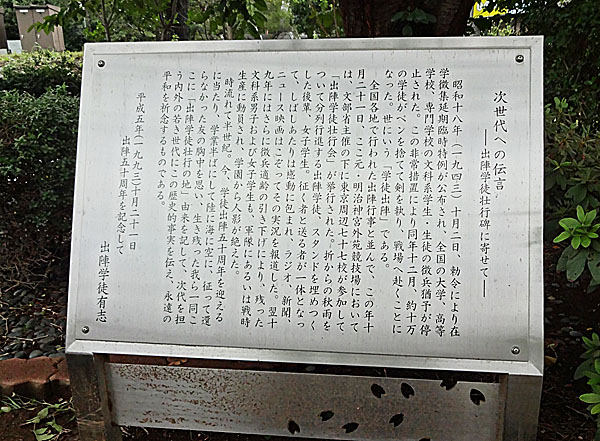 次世代への伝言
――出陣学徒壮行碑に寄せて――
昭和十八年(一九四三)十月二日、勅令により在
学徴集延期臨時特例が公布され、全国の大学、高等
学校、専門学校の文科系学生・生徒の徴兵猶予が停
止された。この非常措置により同年十二月、約十万
の学徒がペンを捨てて剣を執り、戦場へ赴くことに
なった。世にいう「学徒出陣」である。
全国各地で行われた出陣行事と並んで、この年十
月二十一日、ここ元・明治神宮外苑競技場において
は、文部省主催の下に東京周辺七十七校が参加して
「出陣学徒壮行会」が挙行された。折からの秋雨を
ついて分列行進する出陣学徒、スタンドを埋めつく
した後輩、女子学生。征く者と送る者が一体となっ
て、しばしあたりは感動に包まれ、ラジオ、新聞、
ニュース映画はこぞってその実況を報道した。翌十
九年にはさらに徴兵適齢の引き下げにより、残った
文科系男子および女子学生も、軍隊にあるいは戦時
生産に動員され、学園から人影が絶えた。
時流れて半世紀。今、学徒出陣五十周年を迎える
に当たり、学業半ばにして陸に海に空に、征って還
らなかった友の胸中を思い、生き残った我ら一同こ
こに「出陣学徒壮行の地」由来を記して、次代を担
う内外の若き世代にこの歴史的事実を伝え、永遠の
平和を祈念するものである。
平成五年(一九九三)十月二十一日
出陣五十周年を記念して
出陣学徒有志